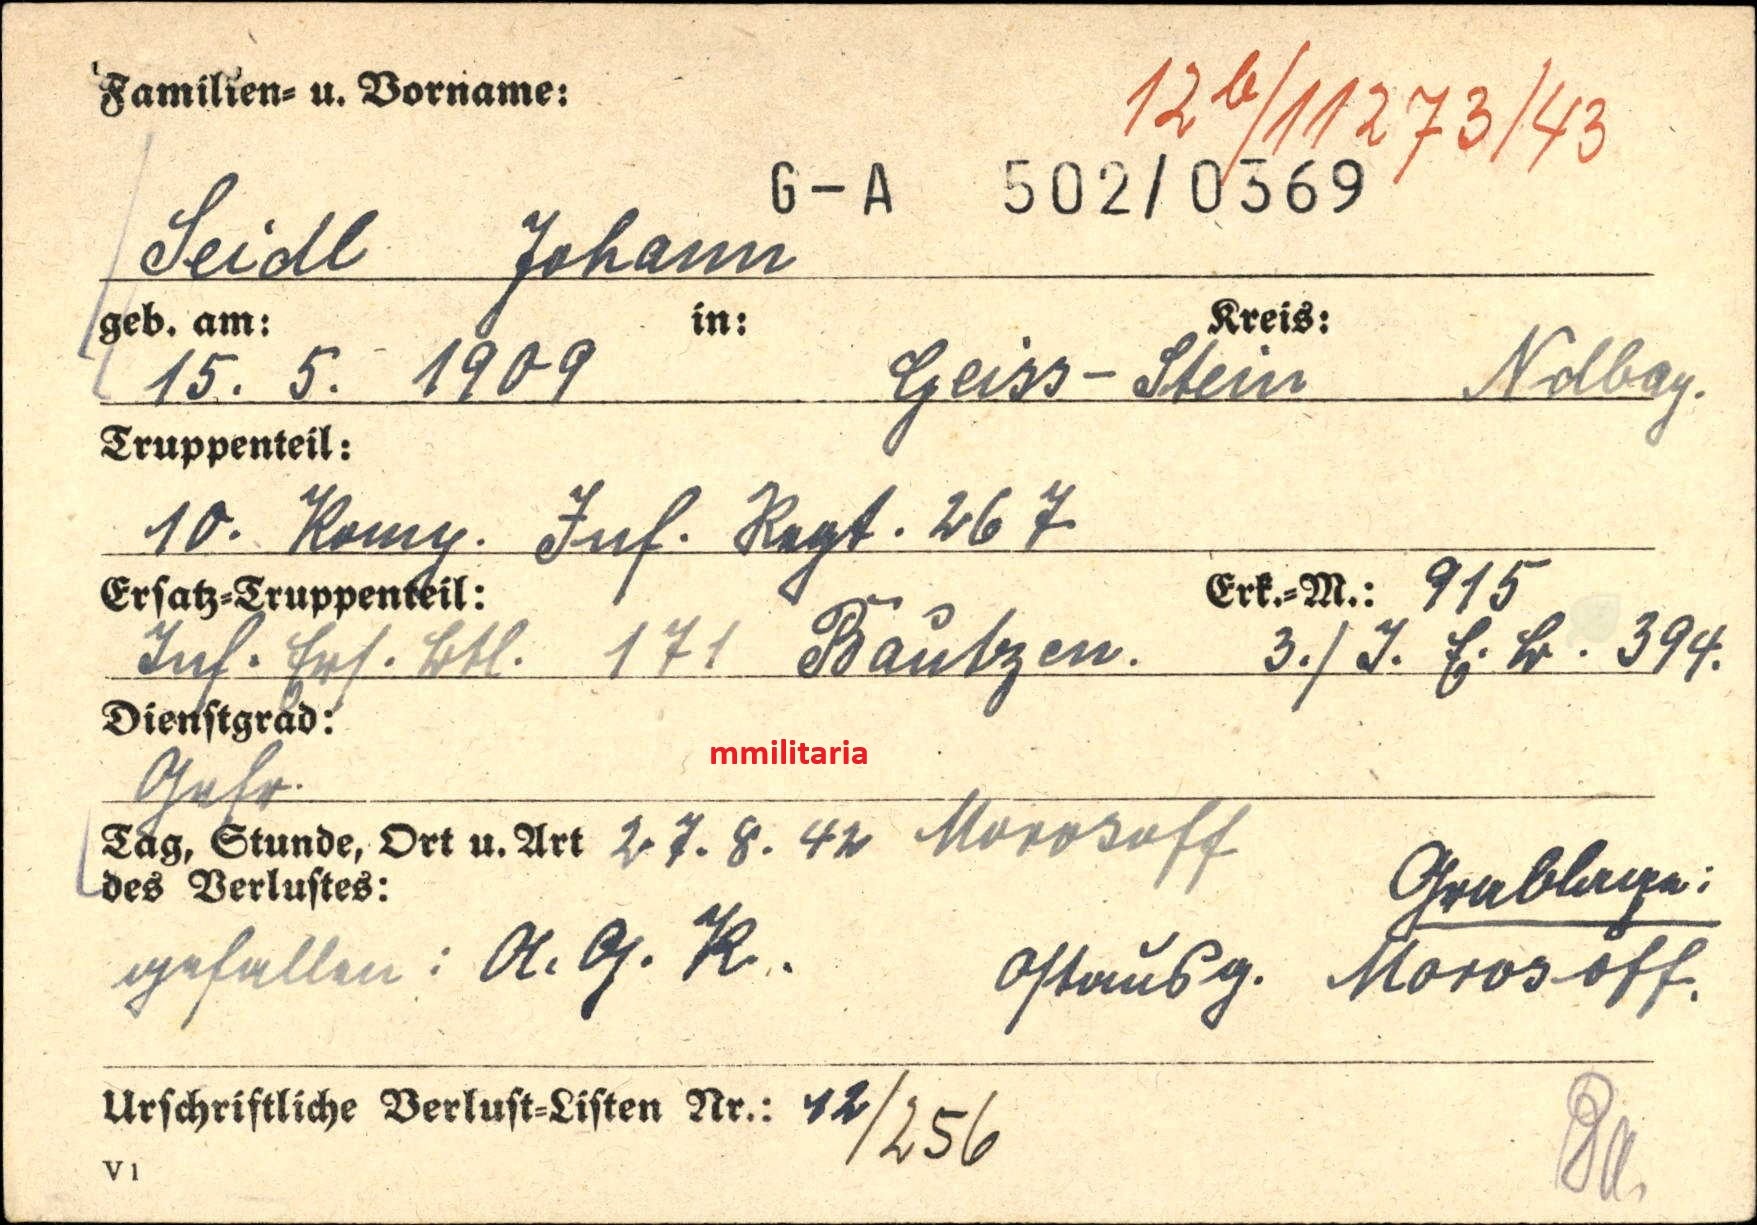 Familien- u. Vorname:
12b/11273/43
G-A 502/0369
Seidl Johann
geb. am: in: Kreis:
15. 5. 1909 Geiss-Stein Ndbay.
Truppenteil:
10. Komp. Inf. Regt. 267
Ersatz-Truppenteil: Erk.-M.: 915
Inf. Ers. Btl. 171 Bautzen. 3./I. E. B. 394.
Dienstgrad:
mmilitaria
Gefr.
Tag, Stunde, Ort u. Art 27. 8. 42 Morosoff
des Verlustes:
Grablage:
gefallen: A. G. K. Ostausg. Morosoff.
Urschriftliche Verlust-Listen Nr.: 12/256
V 1